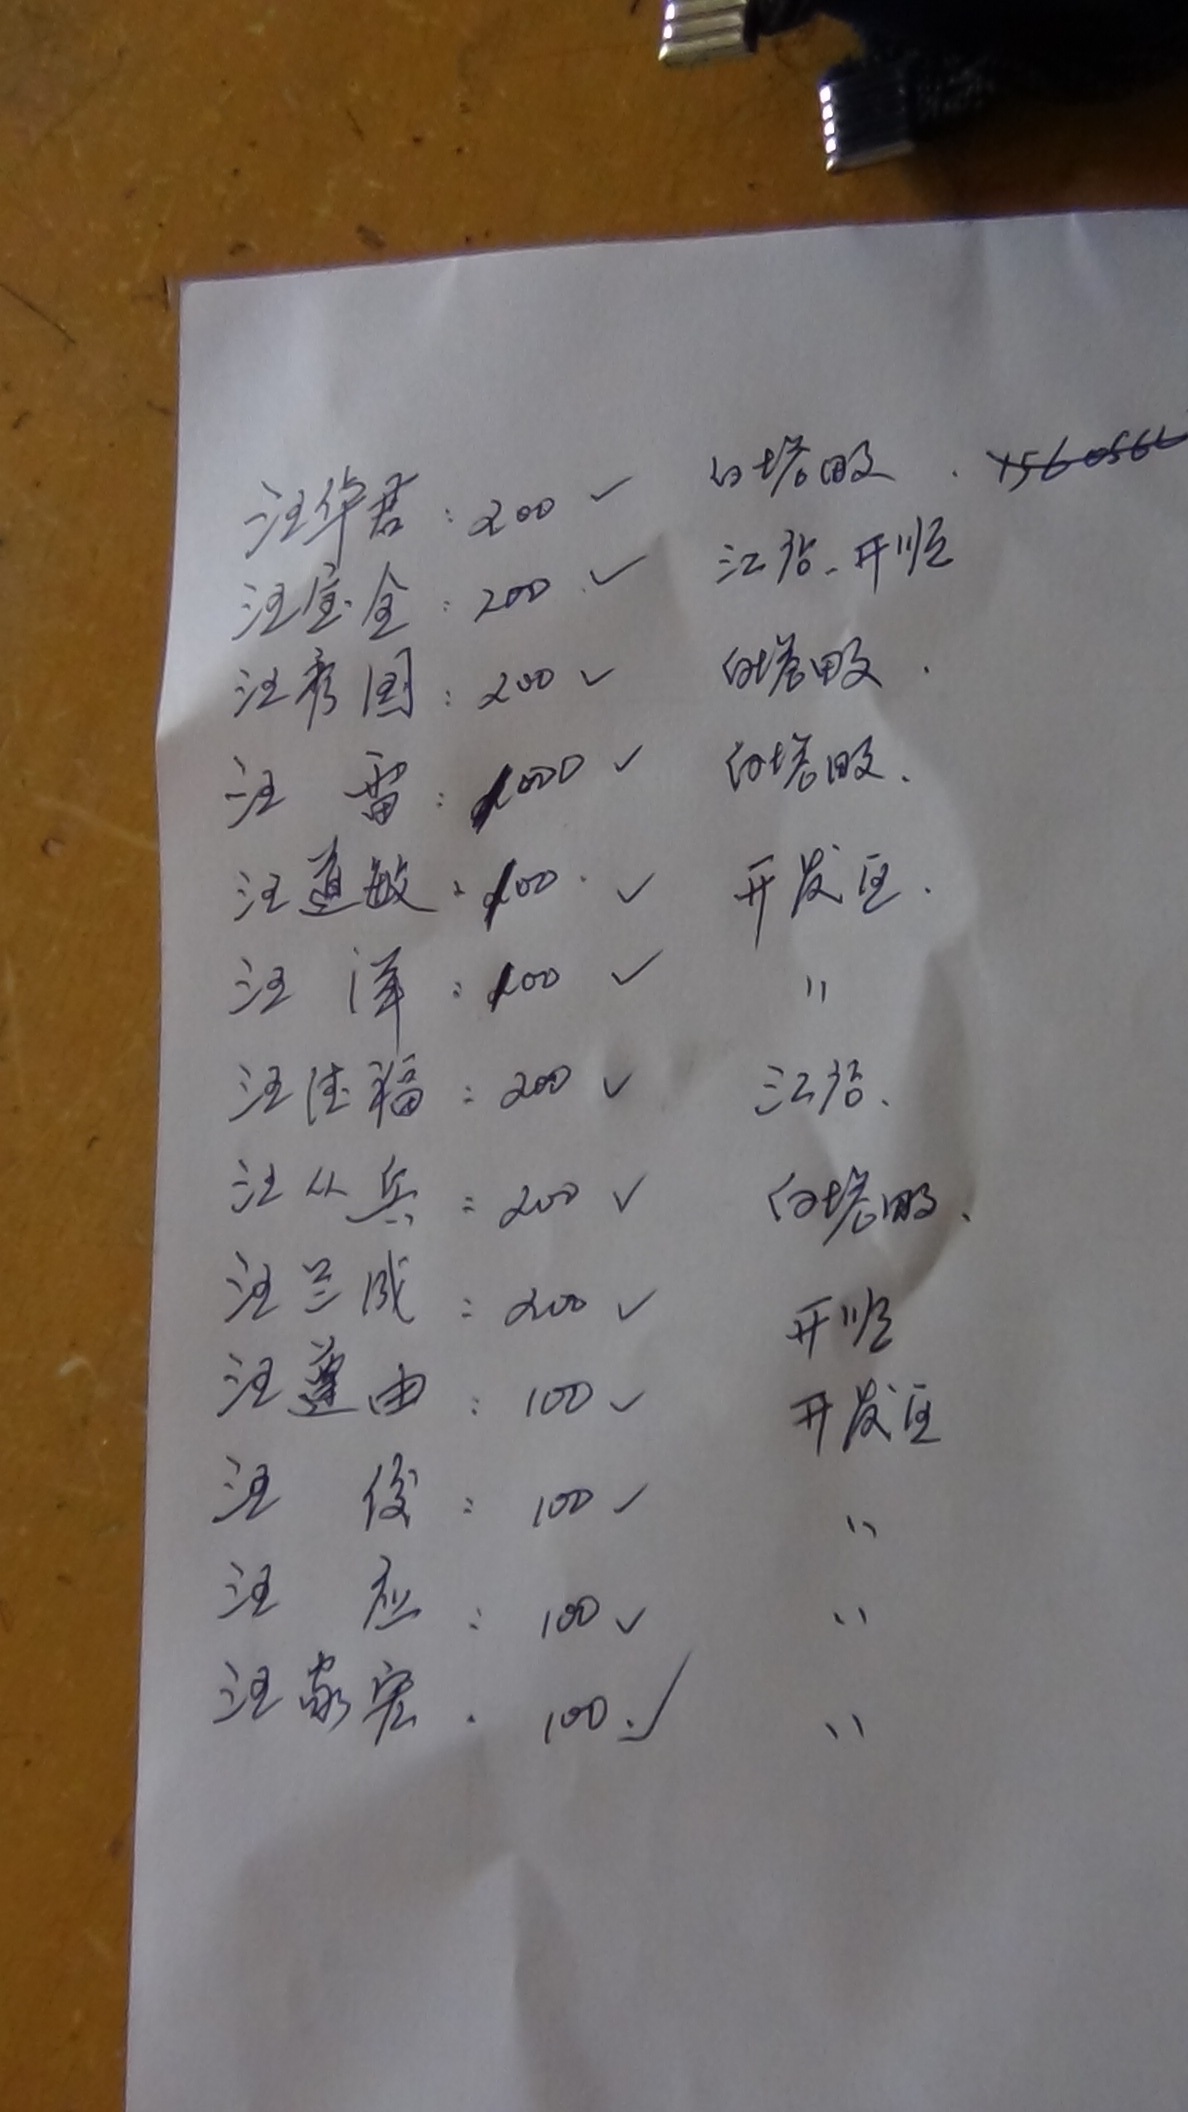 汪华君：200 ✓ 白塔畈．
汪宝全：200 ✓ 江店、开顺
汪秀国：200 ✓ 白塔畈．
汪 雷：1000 ✓ 白塔畈．
汪道敏：100．✓ 开发区．
汪 洋：100 ✓ 〃
汪法福：200 ✓ 江店．
汪从兵：200 ✓ 白塔畈．
汪兰成：200 ✓ 开顺
汪遵由：100 ✓ 开发区
汪 俊：100 ✓ 〃
汪 应：100 ✓ 〃
汪家宏．100．✓ 〃